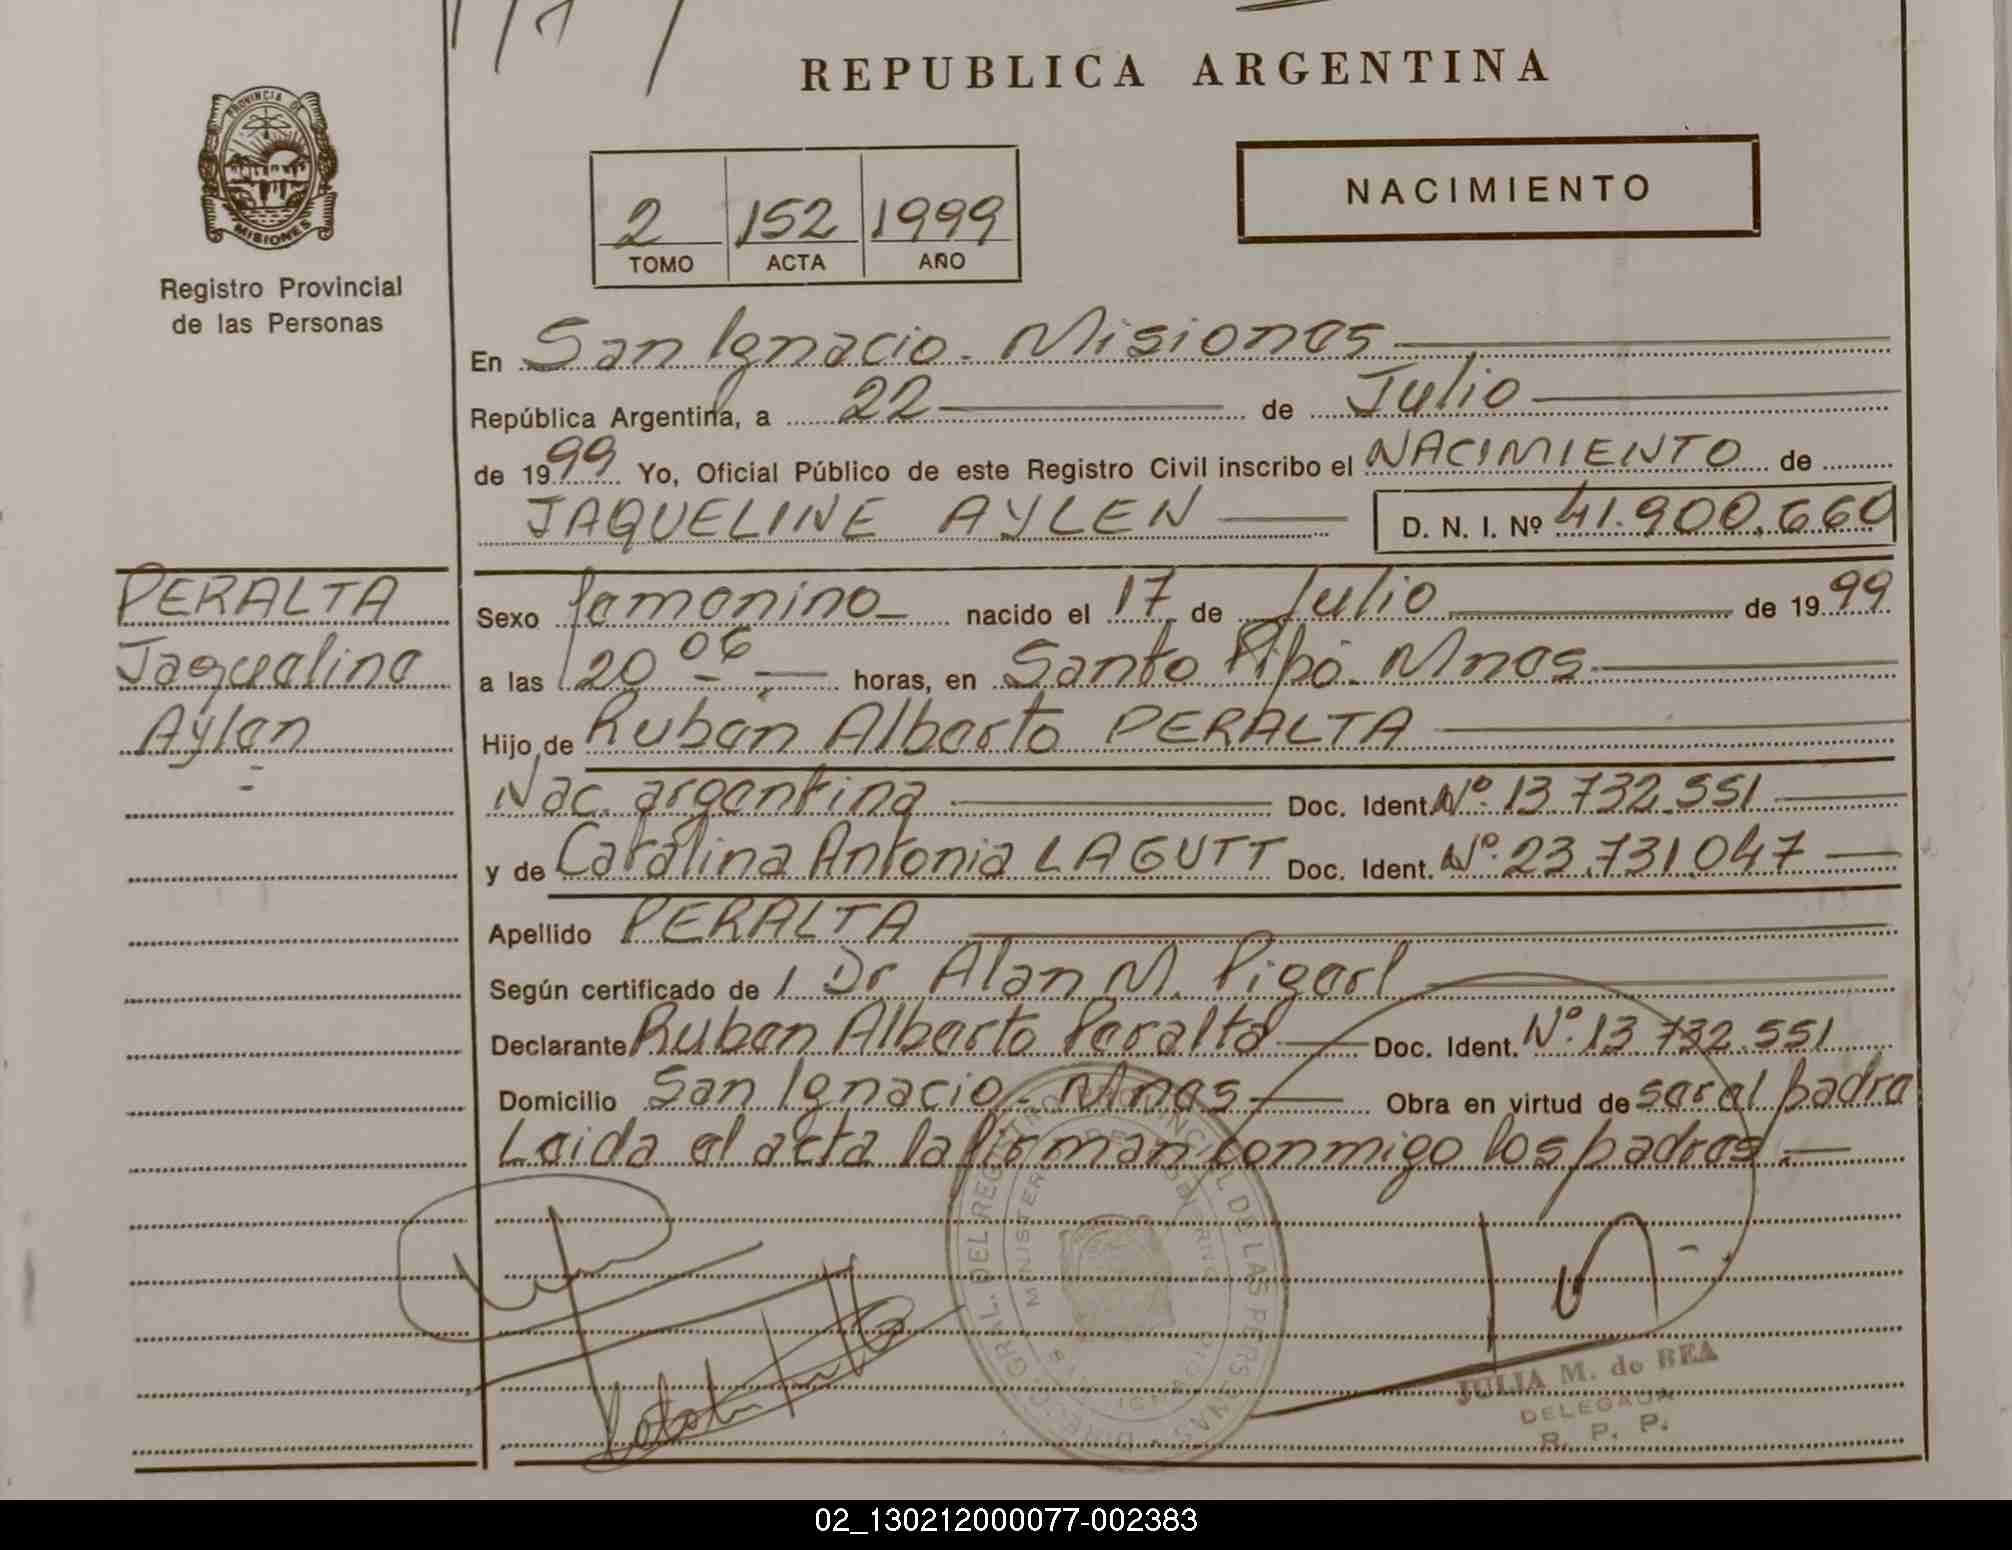 REPUBLICA ARGENTINA
PROVINCIA DE
MISIONES
Registro Provincial
de las Personas
2 152 1999
TOMO ACTA AÑO
NACIMIENTO
En San Ignacio - Misiones
República Argentina, a 22 de Julio
de 1999 Yo, Oficial Público de este Registro Civil inscribo el NACIMIENTO de
JAQUELINE AYLEN D. N. I. Nº 41.900.660
PERALTA
Jaqueline
Aylen
Sexo femenino nacido el 17 de Julio de 1999
a las 20 06 horas, en Santo Pipó - Mnes
Hijo de Ruben Alberto PERALTA
Nac. argentina Doc. Ident. Nº 13.732.551
y de Catalina Antonia LAGUTT Doc. Ident. Nº 23.731.047
Apellido PERALTA
Según certificado de 1 Dr Alan M.
Declarante Ruben Alberto Peralta Doc. Ident. Nº 13.732.551
Domicilio San Ignacio - Mnes Obra en virtud de ser el padre
Leida el acta la firman conmigo los padres.
DIRECC. GRAL. DEL REGISTRO PROVINCIAL DE LAS PERSONAS
JULIA M. de REA
DELEGADA
R. P. P.
02_130212000077-002383